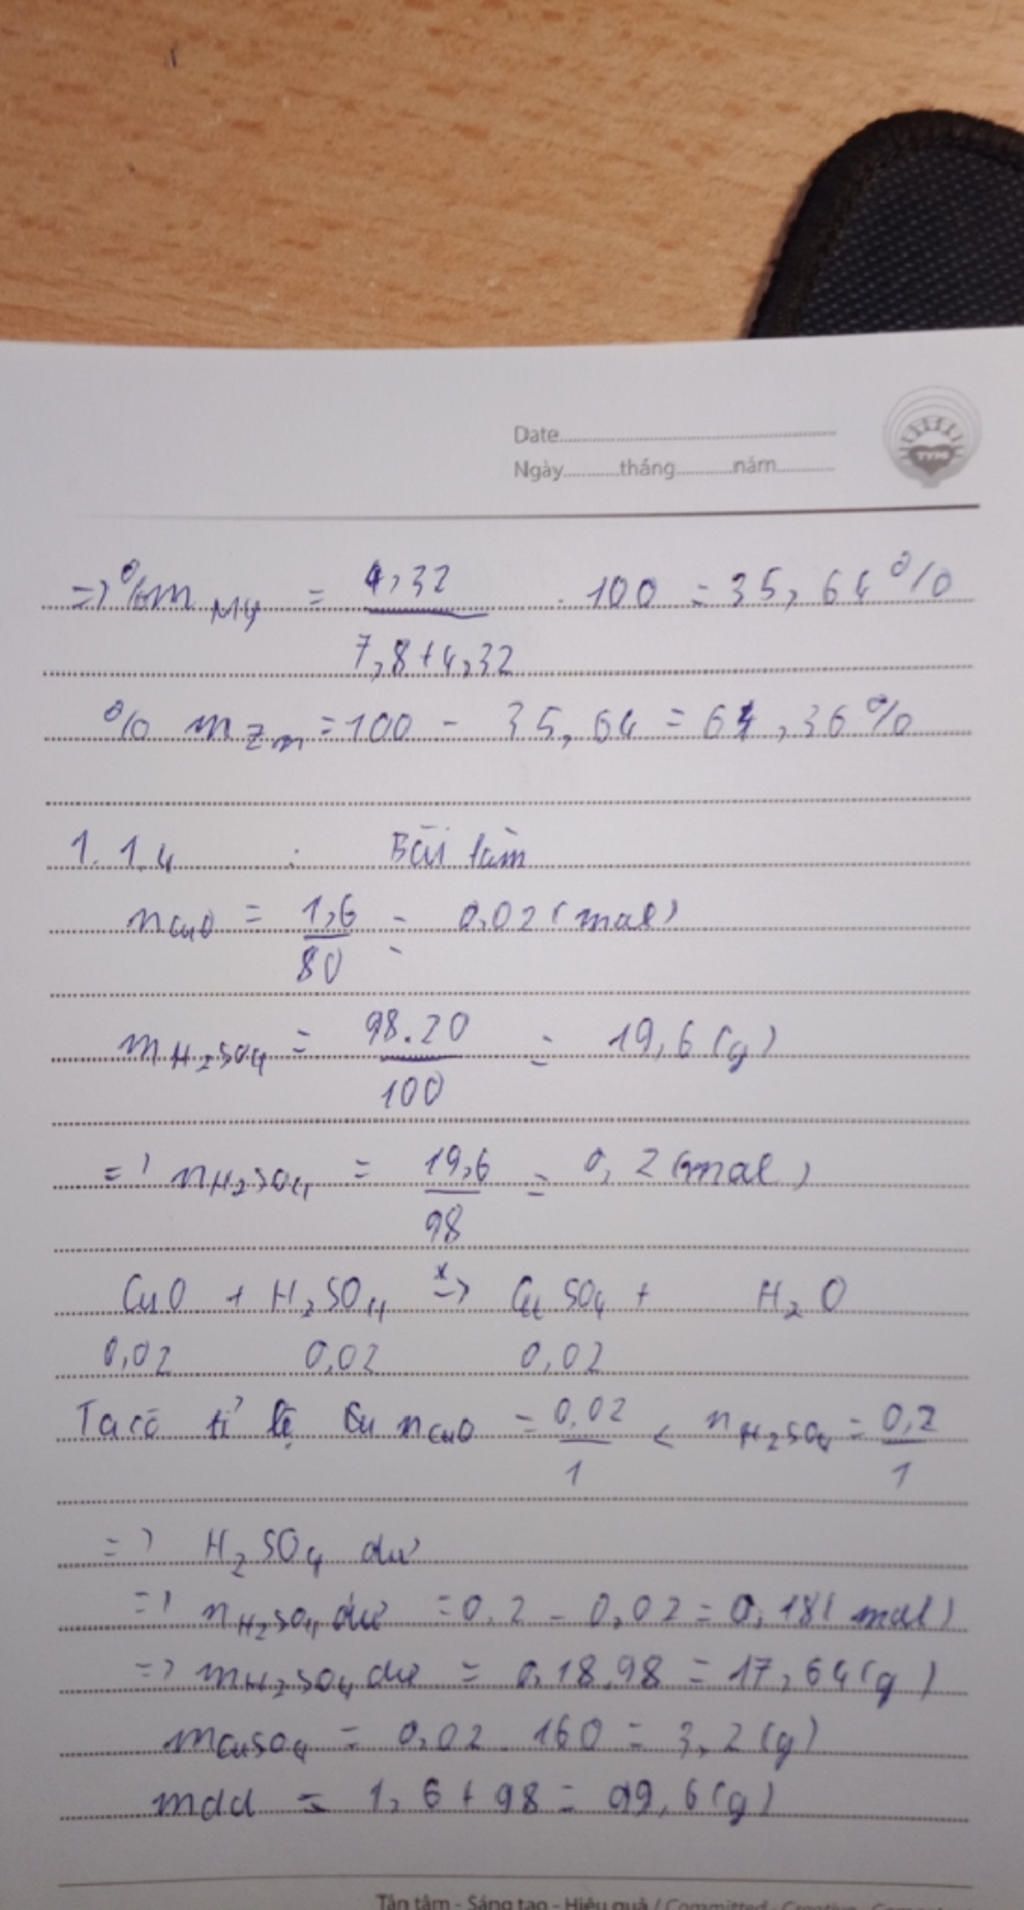 Date
Ngày tháng năm
TYM
=> %m Mg = 4,32 / 7,8+4,32 . 100 = 35,64%
% m Zn = 100 - 35,64 = 64,36%
1.1.4 : Bài làm
n CuO = 1,6 / 80 = 0,02 (mol)
m H2SO4 = 98.20 / 100 = 19,6 (g)
=> n H2SO4 = 19,6 / 98 = 0,2 (mol)
CuO + H2SO4 -> CuSO4 + H2O
0,02 0,02 0,02
Ta có tỉ lệ n CuO = 0,02 / 1 < n H2SO4 = 0,2 / 1
=> H2SO4 dư
=> n H2SO4 dư = 0.2 - 0,02 = 0,18 (mol)
=> m H2SO4 dư = 0,18.98 = 17,64 (g)
m CuSO4 = 0,02 . 160 = 3,2 (g)
mdd = 1,6 + 98 = 99,6 (g)
Tận tâm - Sáng tạo - Hiệu quả / Committed - Creative -